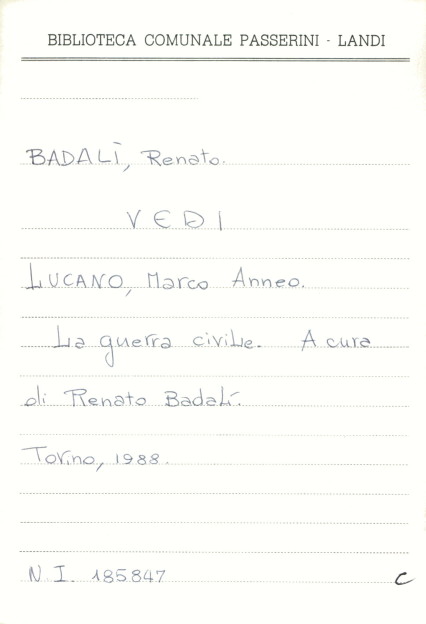 BIBLIOTECA COMUNALE PASSERINI - LANDI
BADALÌ, Renato.
VEDI
LUCANO, Marco Anneo.
La guerra civile. A cura
di Renato Badalì.
Torino, 1988.
N.I. 185847 C